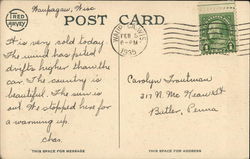 Waupaca, Wisc
POST CARD
FEB 5
6-PM
1935
It is very cold today
The wind has piled
drifts higher than the
car. The country is
beautiful. The sun is
out. We stopped here for
a warming up.
Chas.
Carolyn Troutman
317 N. McKean St
Butler, Penna
THIS SPACE FOR MESSAGE
THIS SPACE FOR ADDRESS